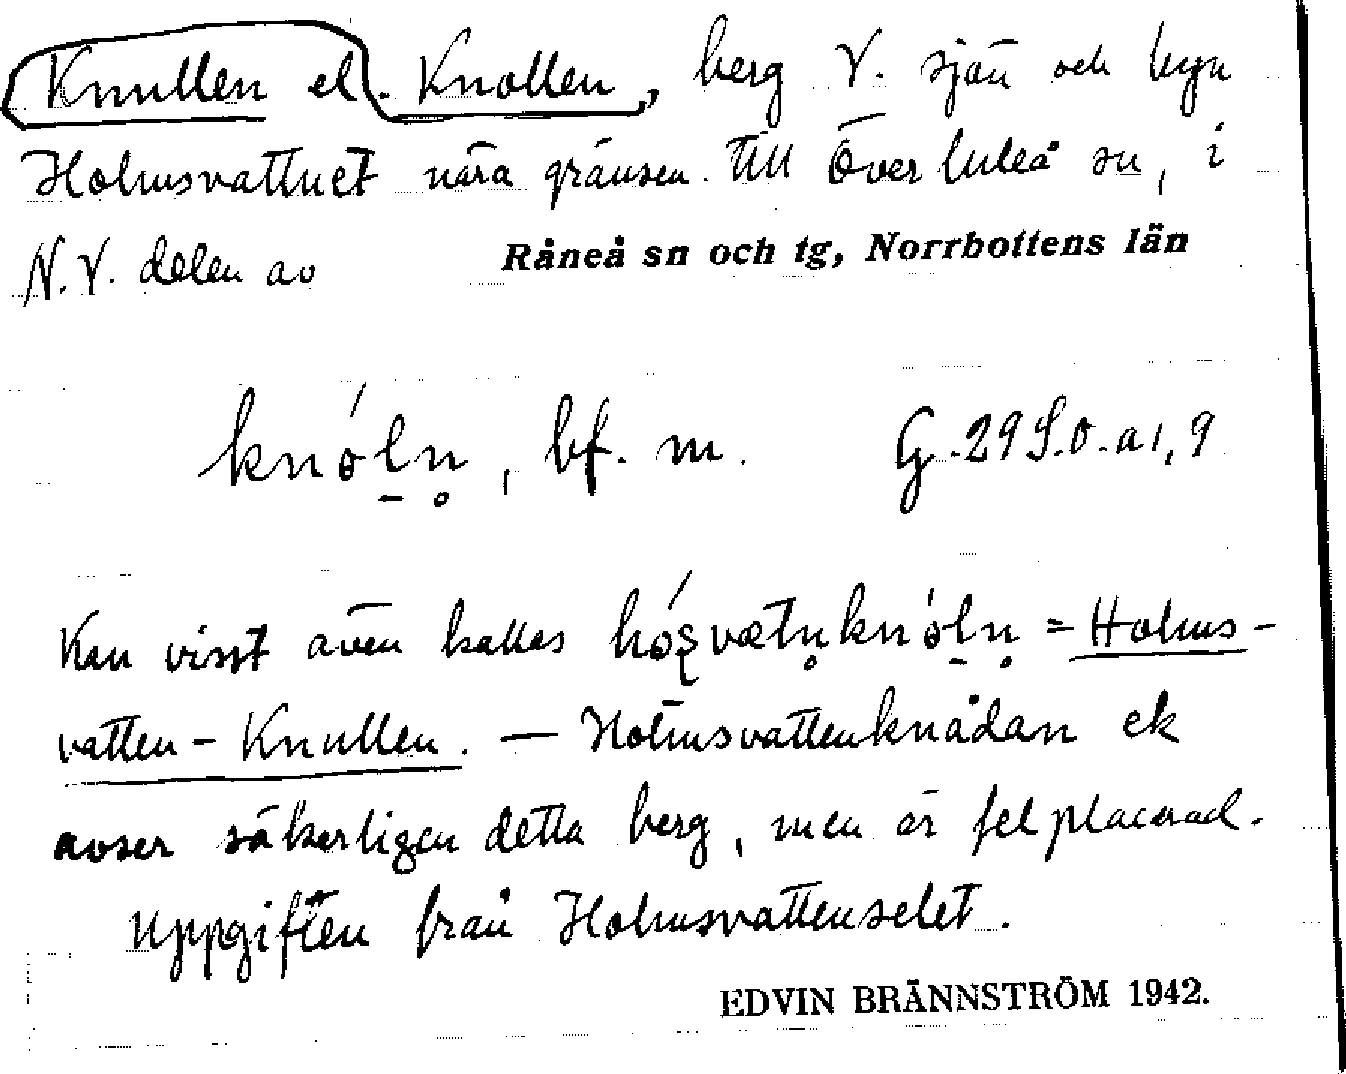 Knullen el. Knollen, berg V. sjön och byn
Holmsvattnet nära gränsen till Överluleå sn, i
N.V. delen av Råneå sn och tg, Norrbottens län
knó̱ln̥, bf. m. G. 29 S.O. a 1, 9
Kan visst även kallas = Holms-
vatten-Knullen. — Holmsvattenknådan ek
avser säkerligen detta berg, men är felplacerad.
Uppgiften från Holmsvattenselet.
EDVIN BRÄNNSTRÖM 1942.